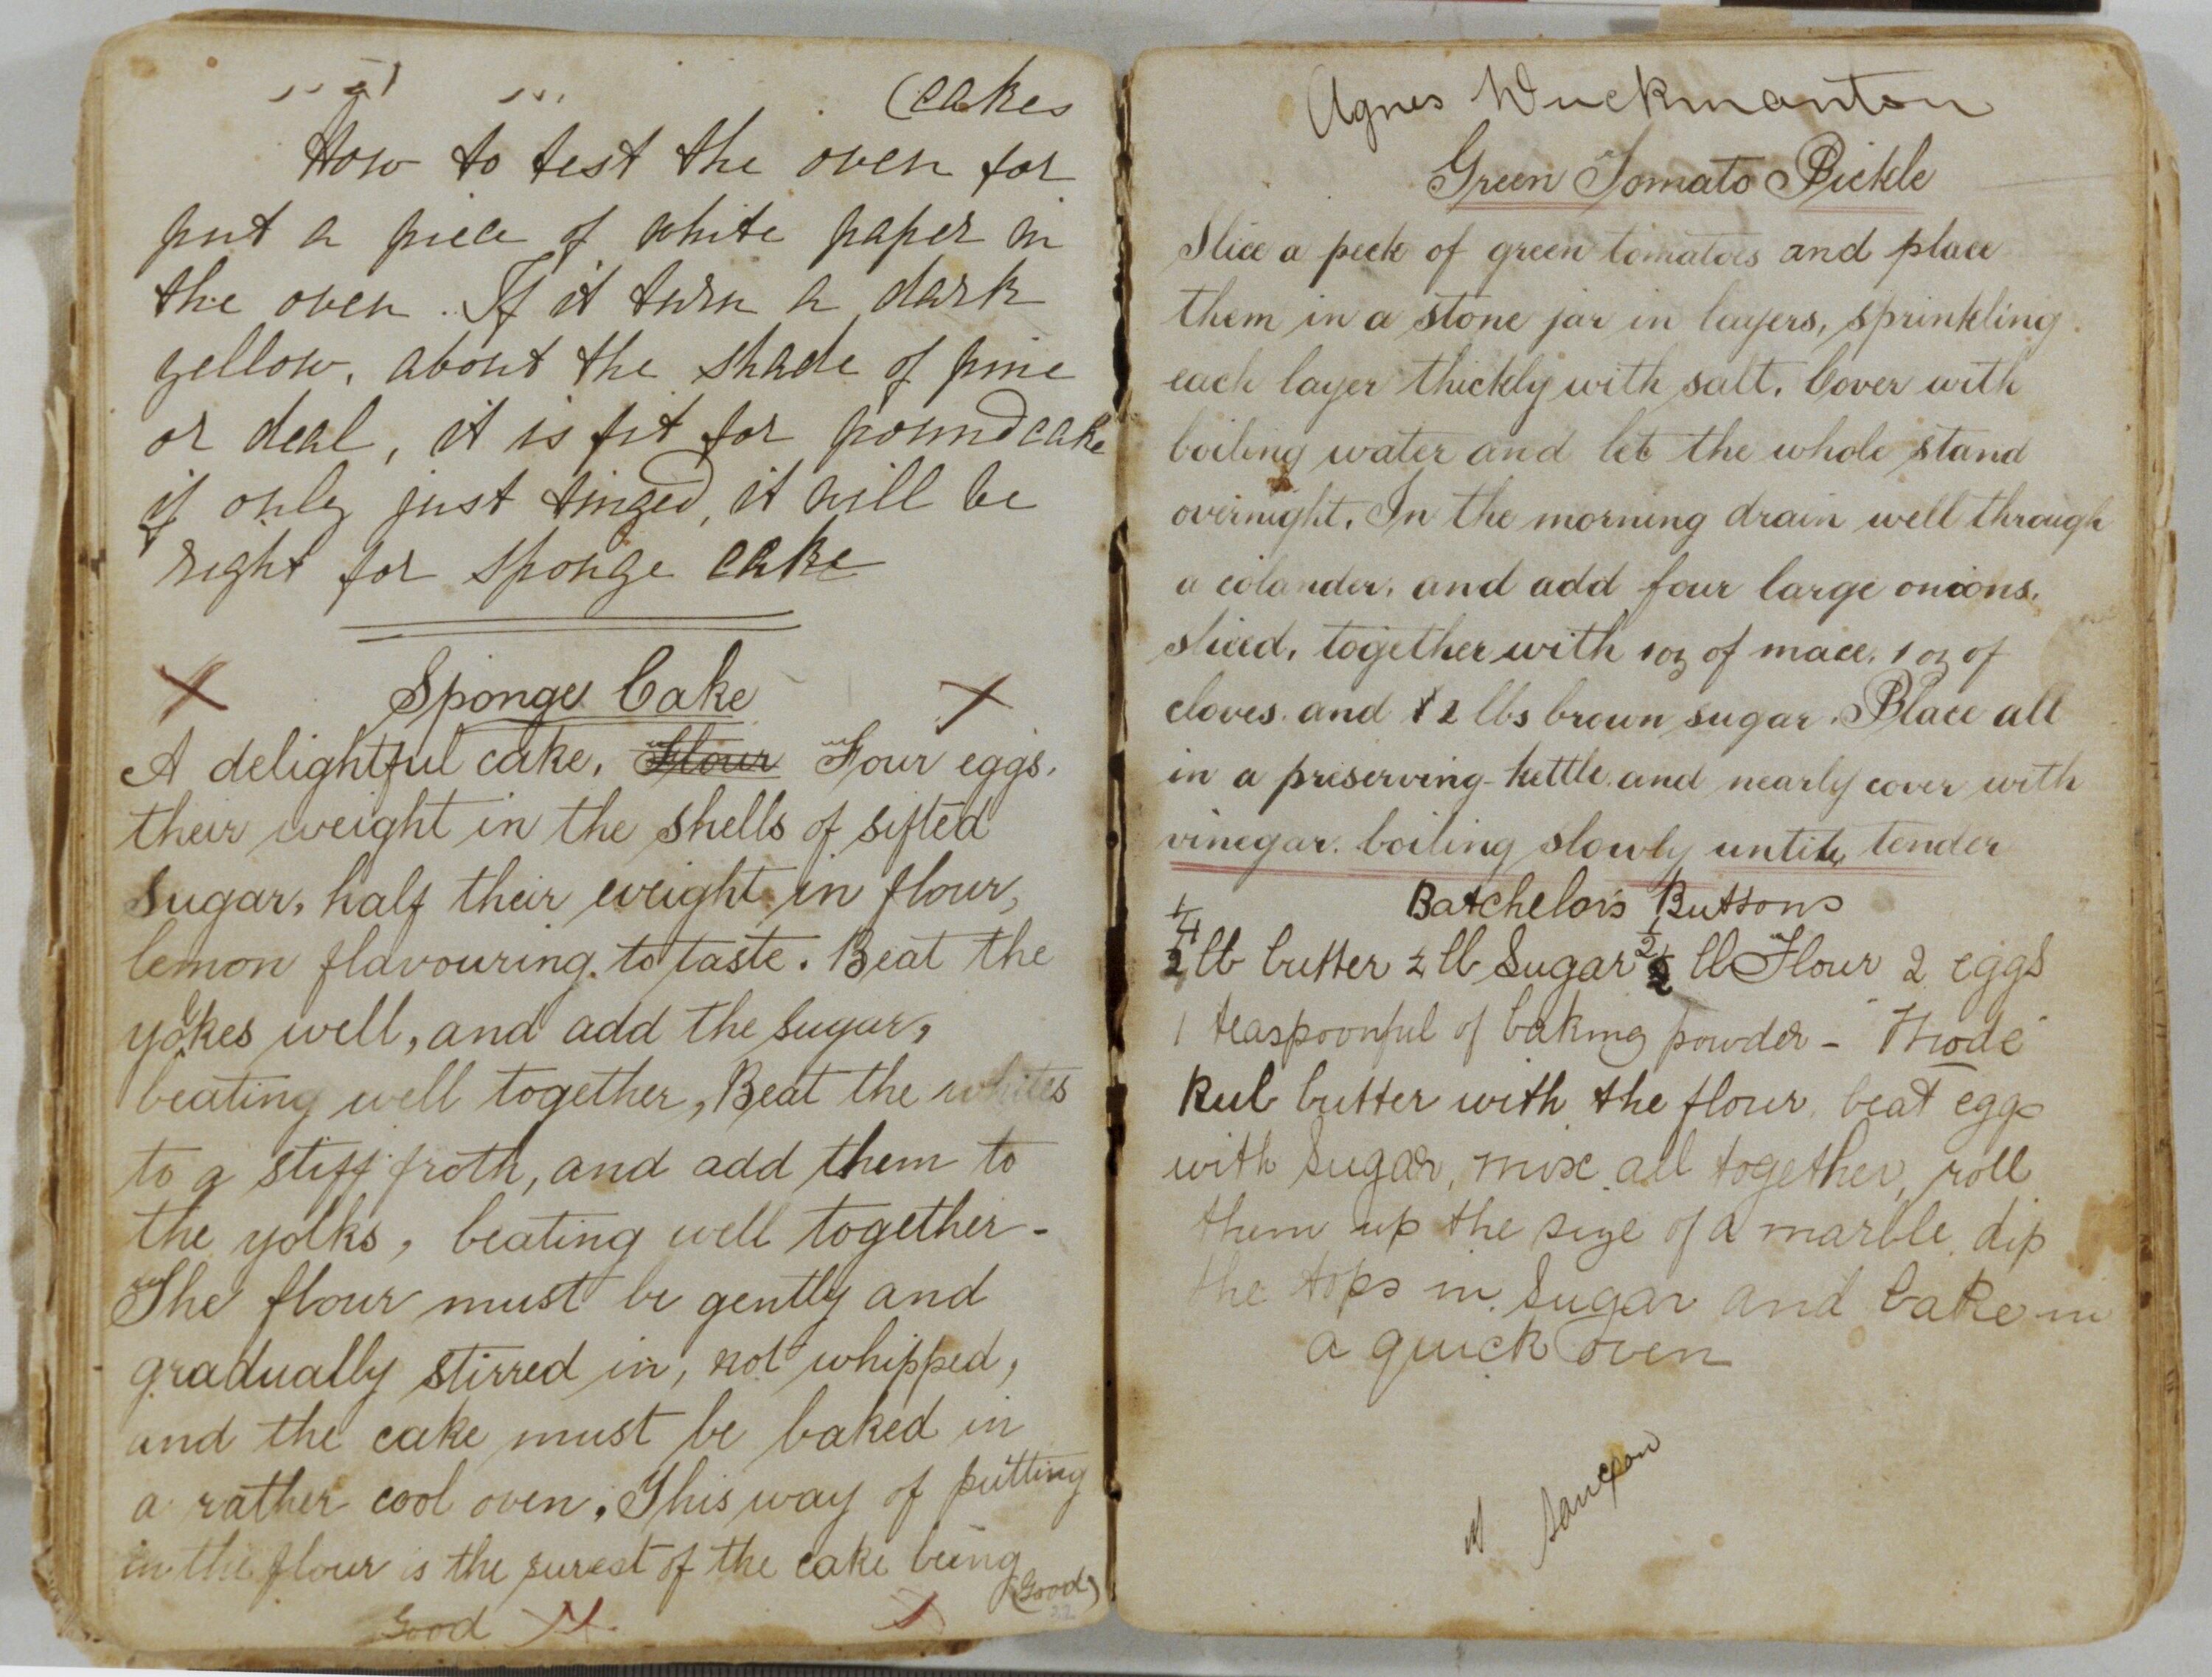 (cakes
How to test the oven for
put a piece of white paper in
the oven. If it turn a dark
yellow, about the shade of pine
or deal, it is fit for poundcake
if only just tinged, it will be
right for sponge cake
Sponge Cake
A delightful cake, Flour Four eggs.
their weight in the shells of sifted
sugar, half their weight in flour,
lemon flavouring to taste. Beat the
yolkes well, and add the sugar,
beating well together, Beat the whites
to a stiff froth, and add them to
the yolks, beating well together -
The flour must be gently and
gradually stirred in, not whipped,
and the cake must be baked in
a rather cool oven. This way of putting
in the flour is the surest of the cake being
(Good)
Good
Agnes
Green Tomato Pickle
Slice a peck of green tomatoes and place
them in a stone jar in layers, sprinkling
each layer thickly with salt. Cover with
boiling water and let the whole stand
overnight. In the morning drain well through
a colander, and add four large onions.
sliced, together with 1 oz of mace, 1 oz of
cloves. and 2 lbs brown sugar. Place all
in a preserving-kettle and nearly cover with
vinegar. boiling slowly until tender
Batchelor's Buttons
1/4
1/2 lb butter 1/4 lb Sugar 1/2 lb Flour 2 eggs
1 teaspoonful of baking powder - "Mode"
Rub butter with the flour, beat eggs
with Sugar, mix all together, roll
them up the size of a marble, dip
the tops in Sugar and bake in
a quick oven